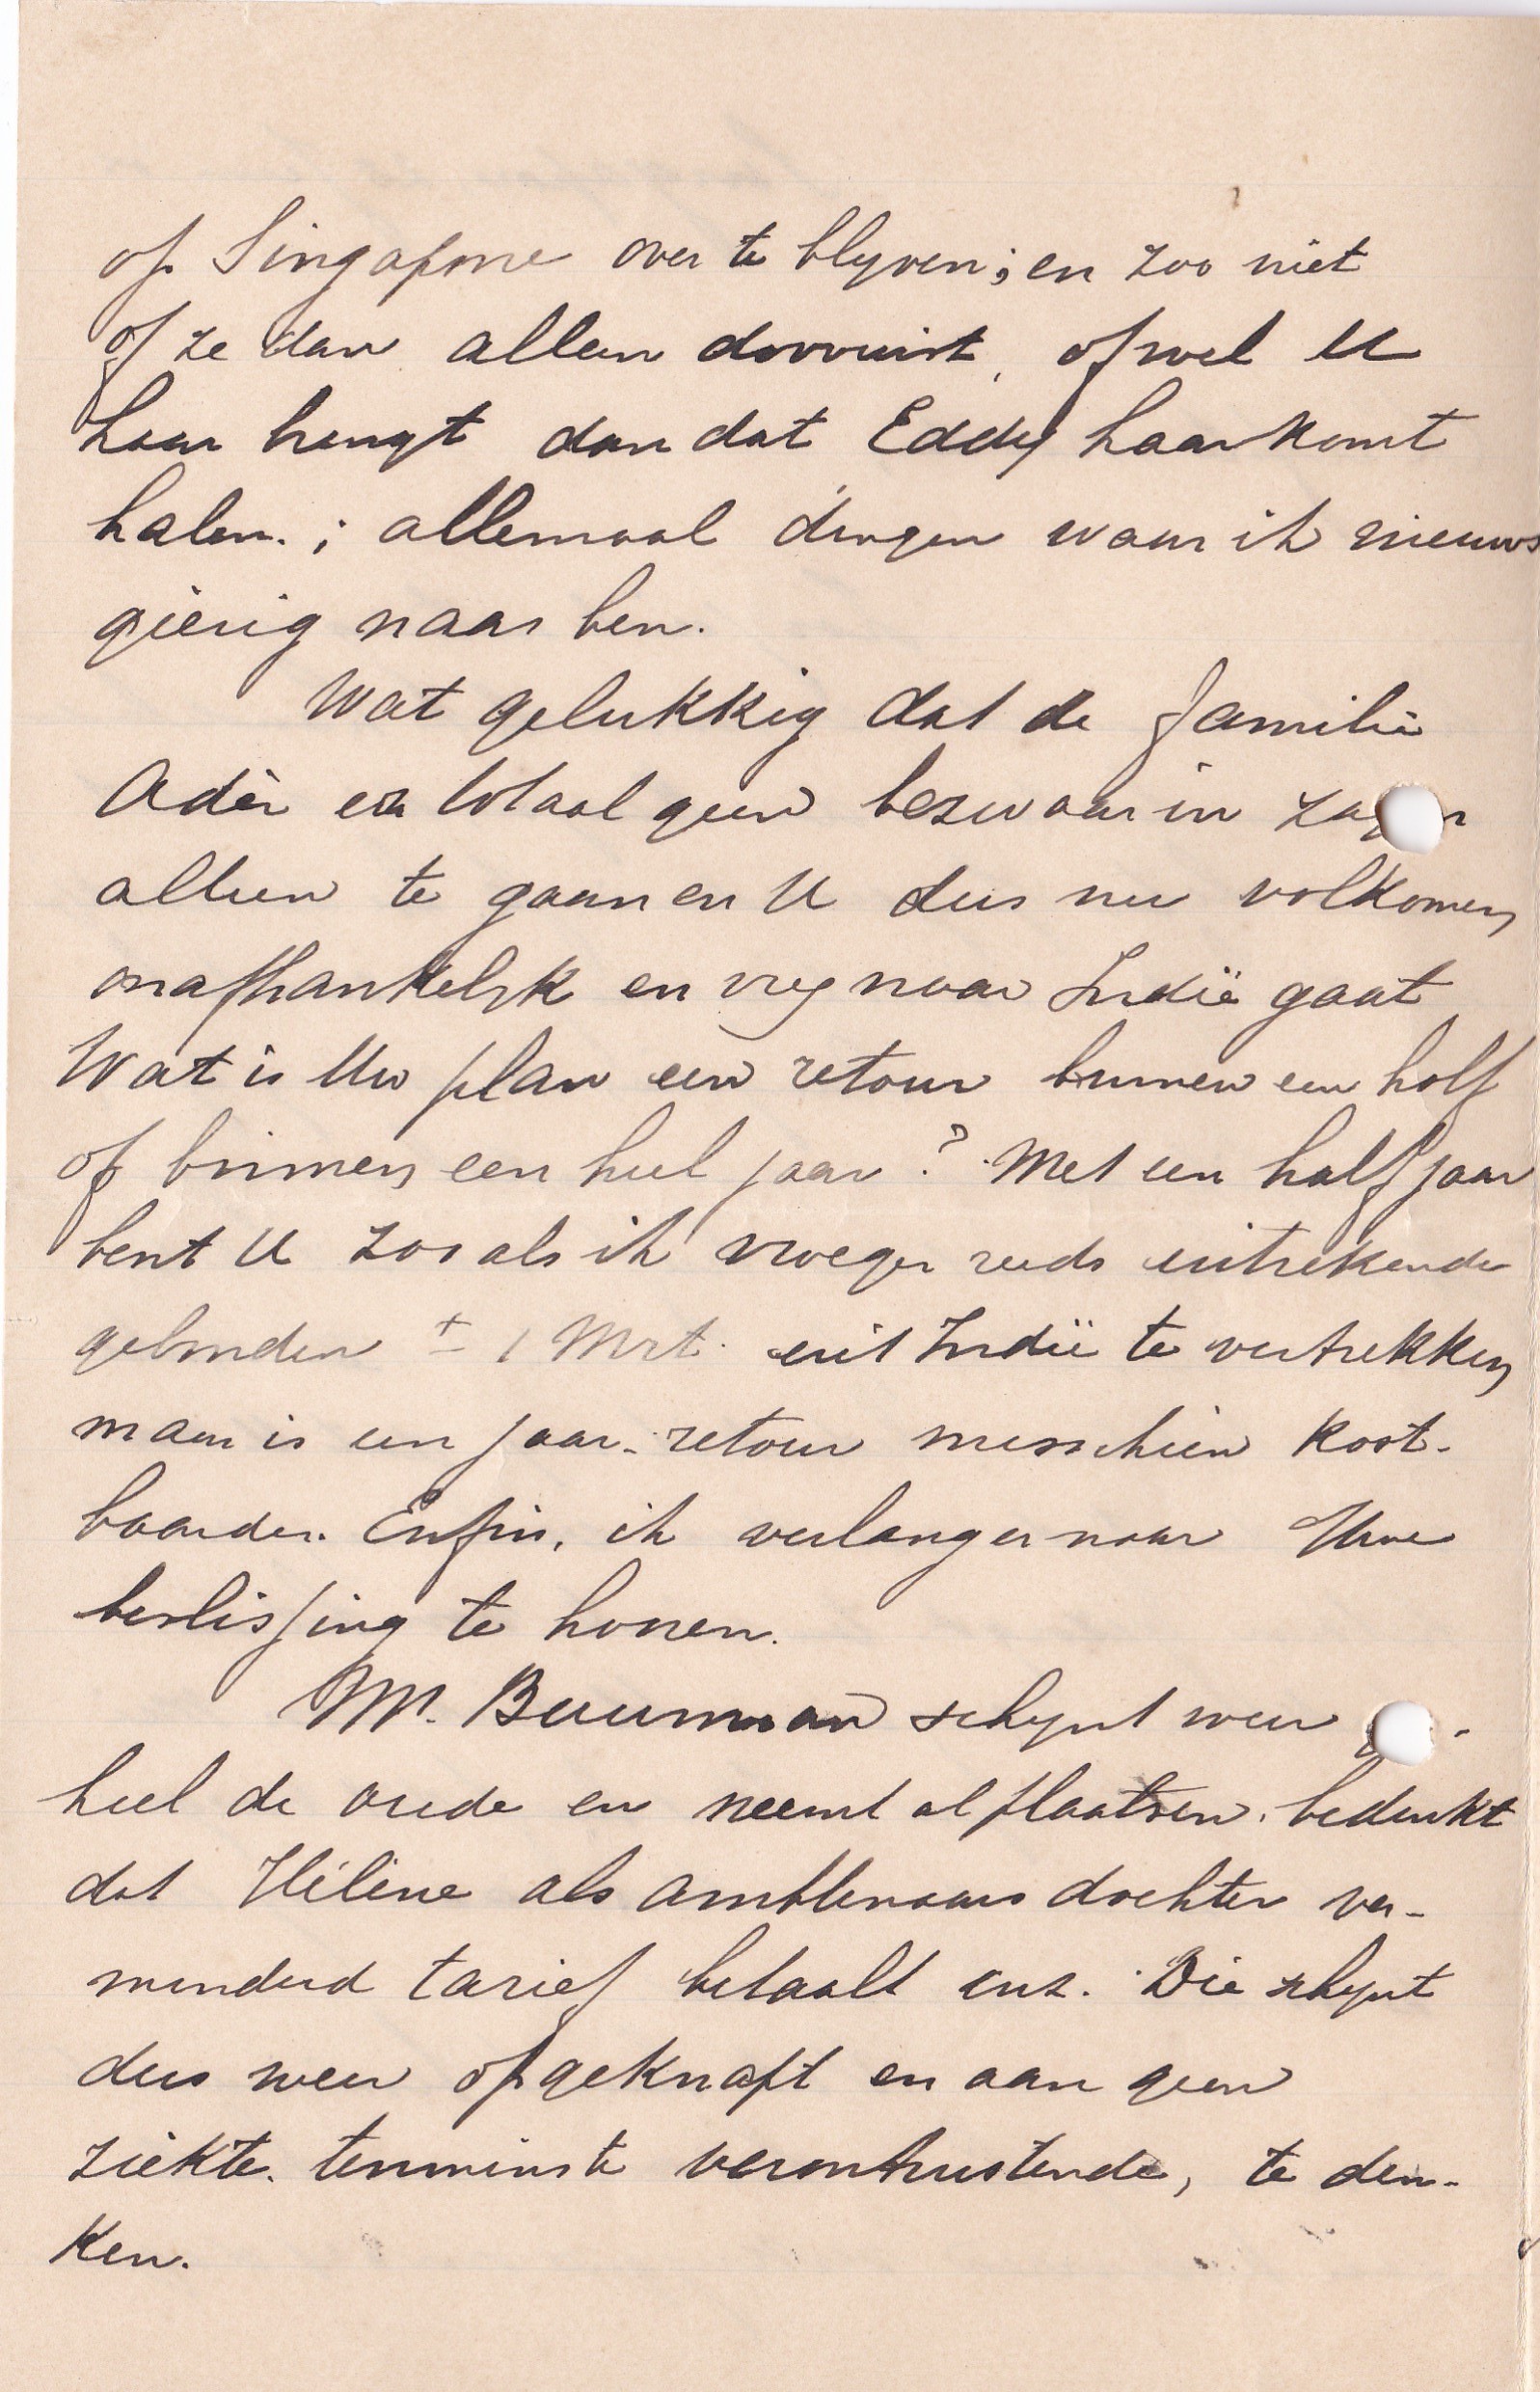 op Singapore over te blyven; en zoo niet
of ze dan alleen doorreist, ofwel U
haar brengt dan dat Eddy haar komt
halen.; allemaal dingen waar ik nieuws
gierig naar ben.
Wat gelukkig dat de familie
Adèr er totaal geen bezwaar in zagen
alleen te gaan en U dus nu volkomen
onafhankelyk en vry naar Indië gaat
Wat is Uw plan een retour binnen een half
of binnen een heel jaar? Met een half jaar
bent U zooals ik vroeger reeds uitrekende
gebonden ± 1 Mrt. uit Indië te vertrekken
maar is een jaar-retour misschien kost-
baarder. Enfin, ik verlang er naar Uwe
beslissing te hooren.
Mr. Buurman schynt weer
heel de oude en neemt al plaatsen. bedenkt
dat Hélène als ambtenaars dochter ver-
minderd tarief betaalt enz. Die schynt
dus weer opgeknapt en aan geen
ziekte. tenminste verontrustende, te den-
ken.